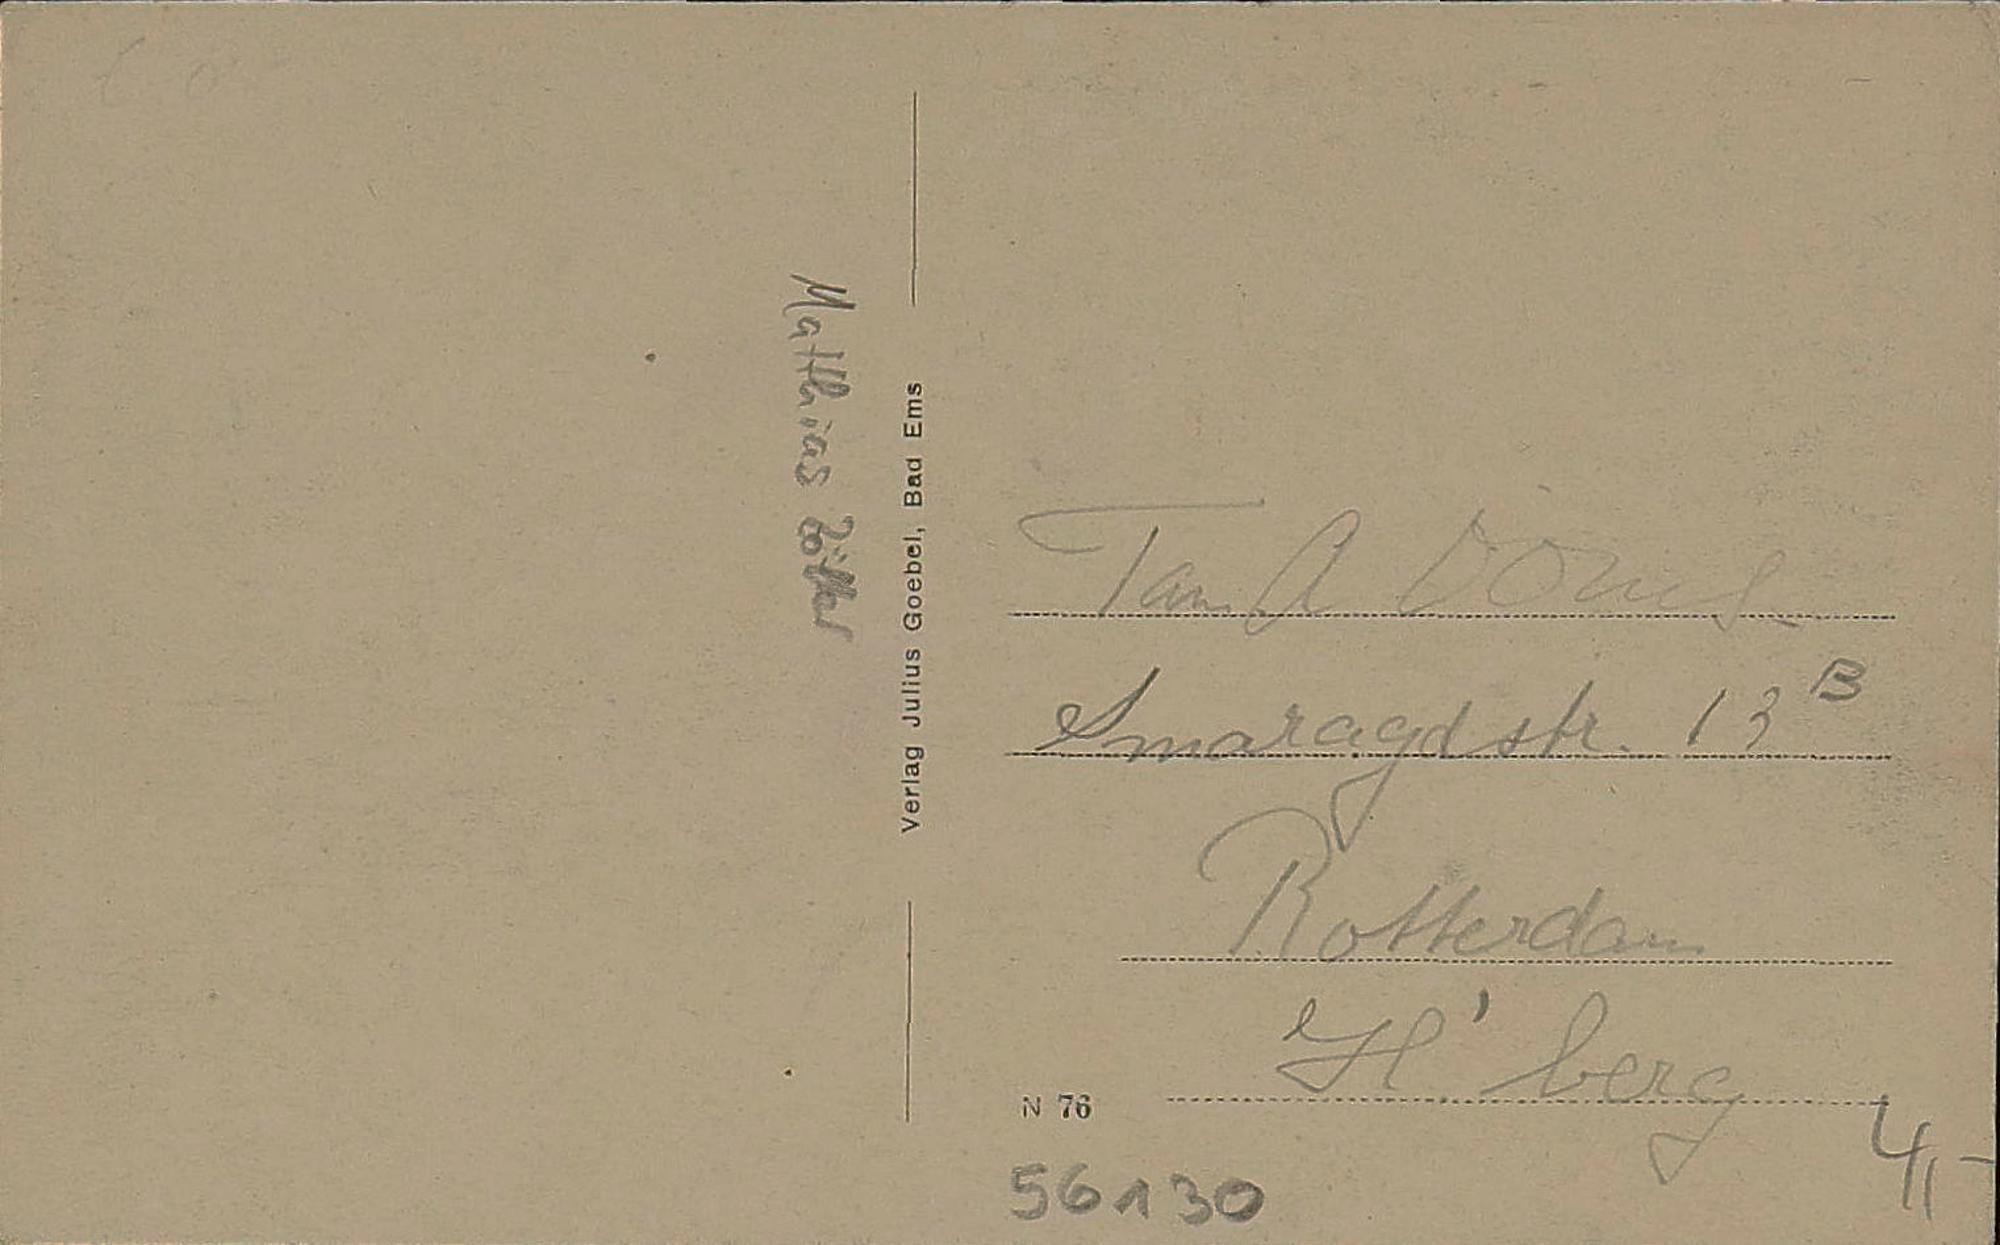 Matthias
Verlag Julius Goebel, Bad Ems
Fam A
Smaragdstr. 13 B
Rotterdam
H' berg
N 76
56130
4,-